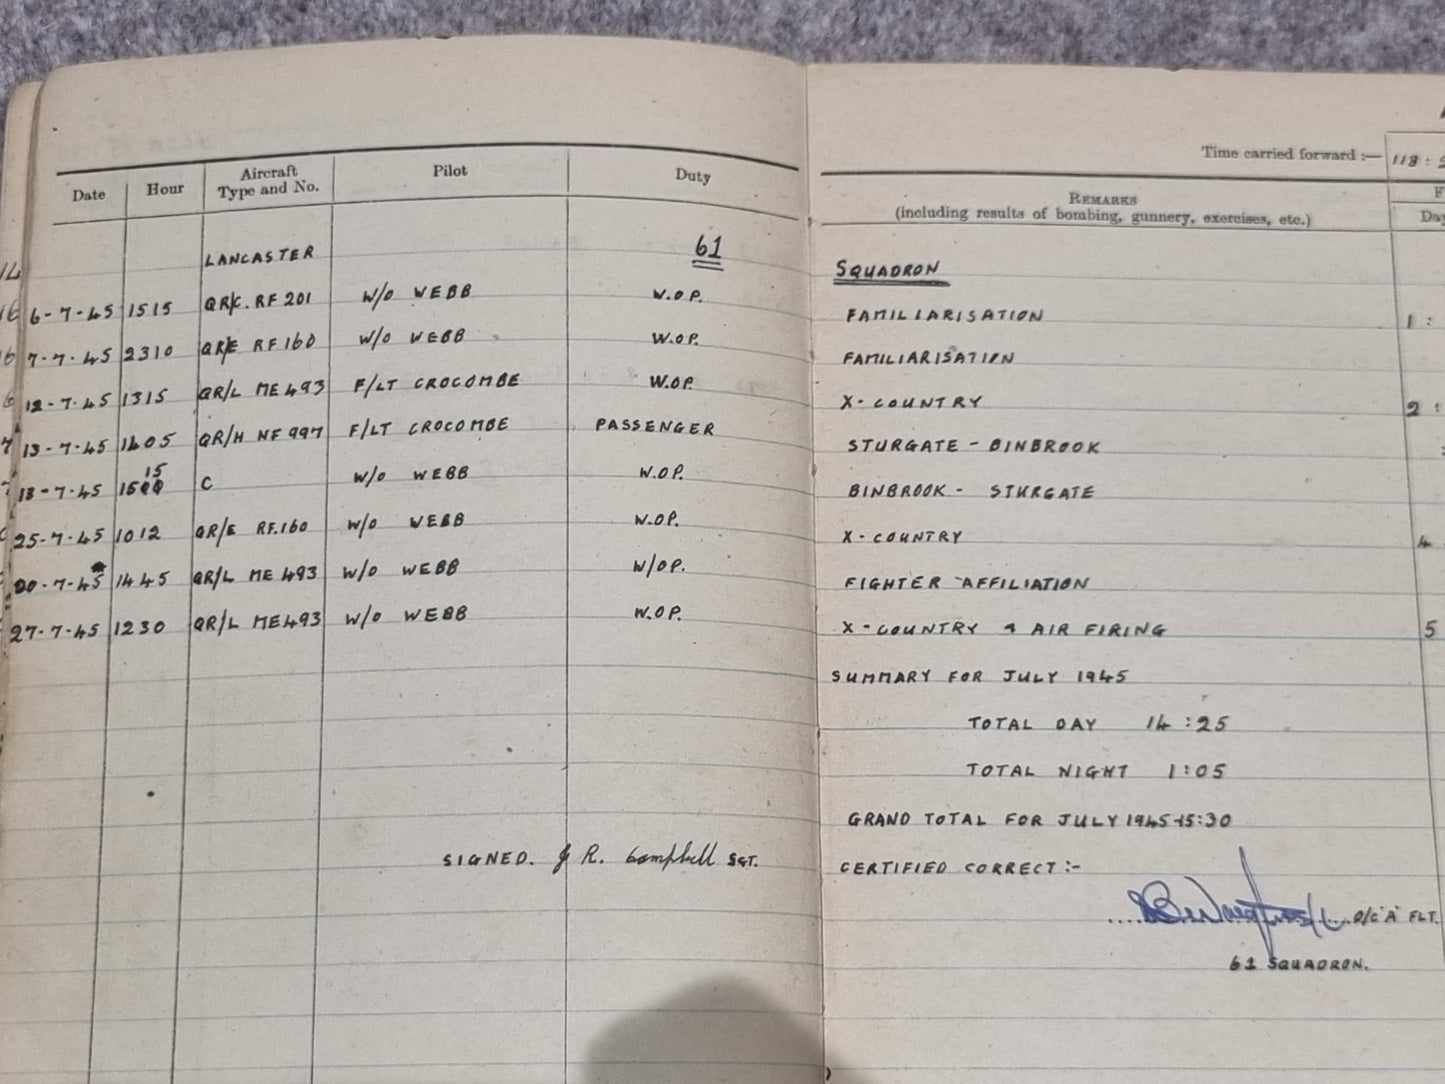 Time carried forward :— 118 :
Date Hour Aircraft Type and No. Pilot Duty REMARKS (including results of bombing, gunnery, exercises, etc.) Day
LANCASTER 61 SQUADRON
6-7-45 1515 QR/C. RF 201 W/O WEBB W.O.P. FAMILIARISATION 1 :
7-7-45 2310 QR/E RF160 W/O WEBB W.O.P. FAMILIARISATION
12-7-45 1315 QR/L ME493 F/LT CROCOMBE W.O.P. X-COUNTRY 2 :
13-7-45 1405 QR/H NF997 F/LT CROCOMBE PASSENGER STURGATE - BINBROOK
13-7-45 1515 C W/O WEBB W.O.P. BINBROOK - STURGATE
25-7-45 1012 QR/E RF.160 W/O WEBB W.O.P. X-COUNTRY 4
-7-45 1445 QR/L ME493 W/O WEBB W/OP. FIGHTER AFFILIATION
27-7-45 1230 QR/L ME493 W/O WEBB W.O.P. X-COUNTRY & AIR FIRING 5
SUMMARY FOR JULY 1945
TOTAL DAY 14:25
TOTAL NIGHT 1:05
GRAND TOTAL FOR JULY 1945-15:30
SIGNED. J R. Campbell SGT. CERTIFIED CORRECT:-
O/C 'A' FLT.
61 SQUADRON.